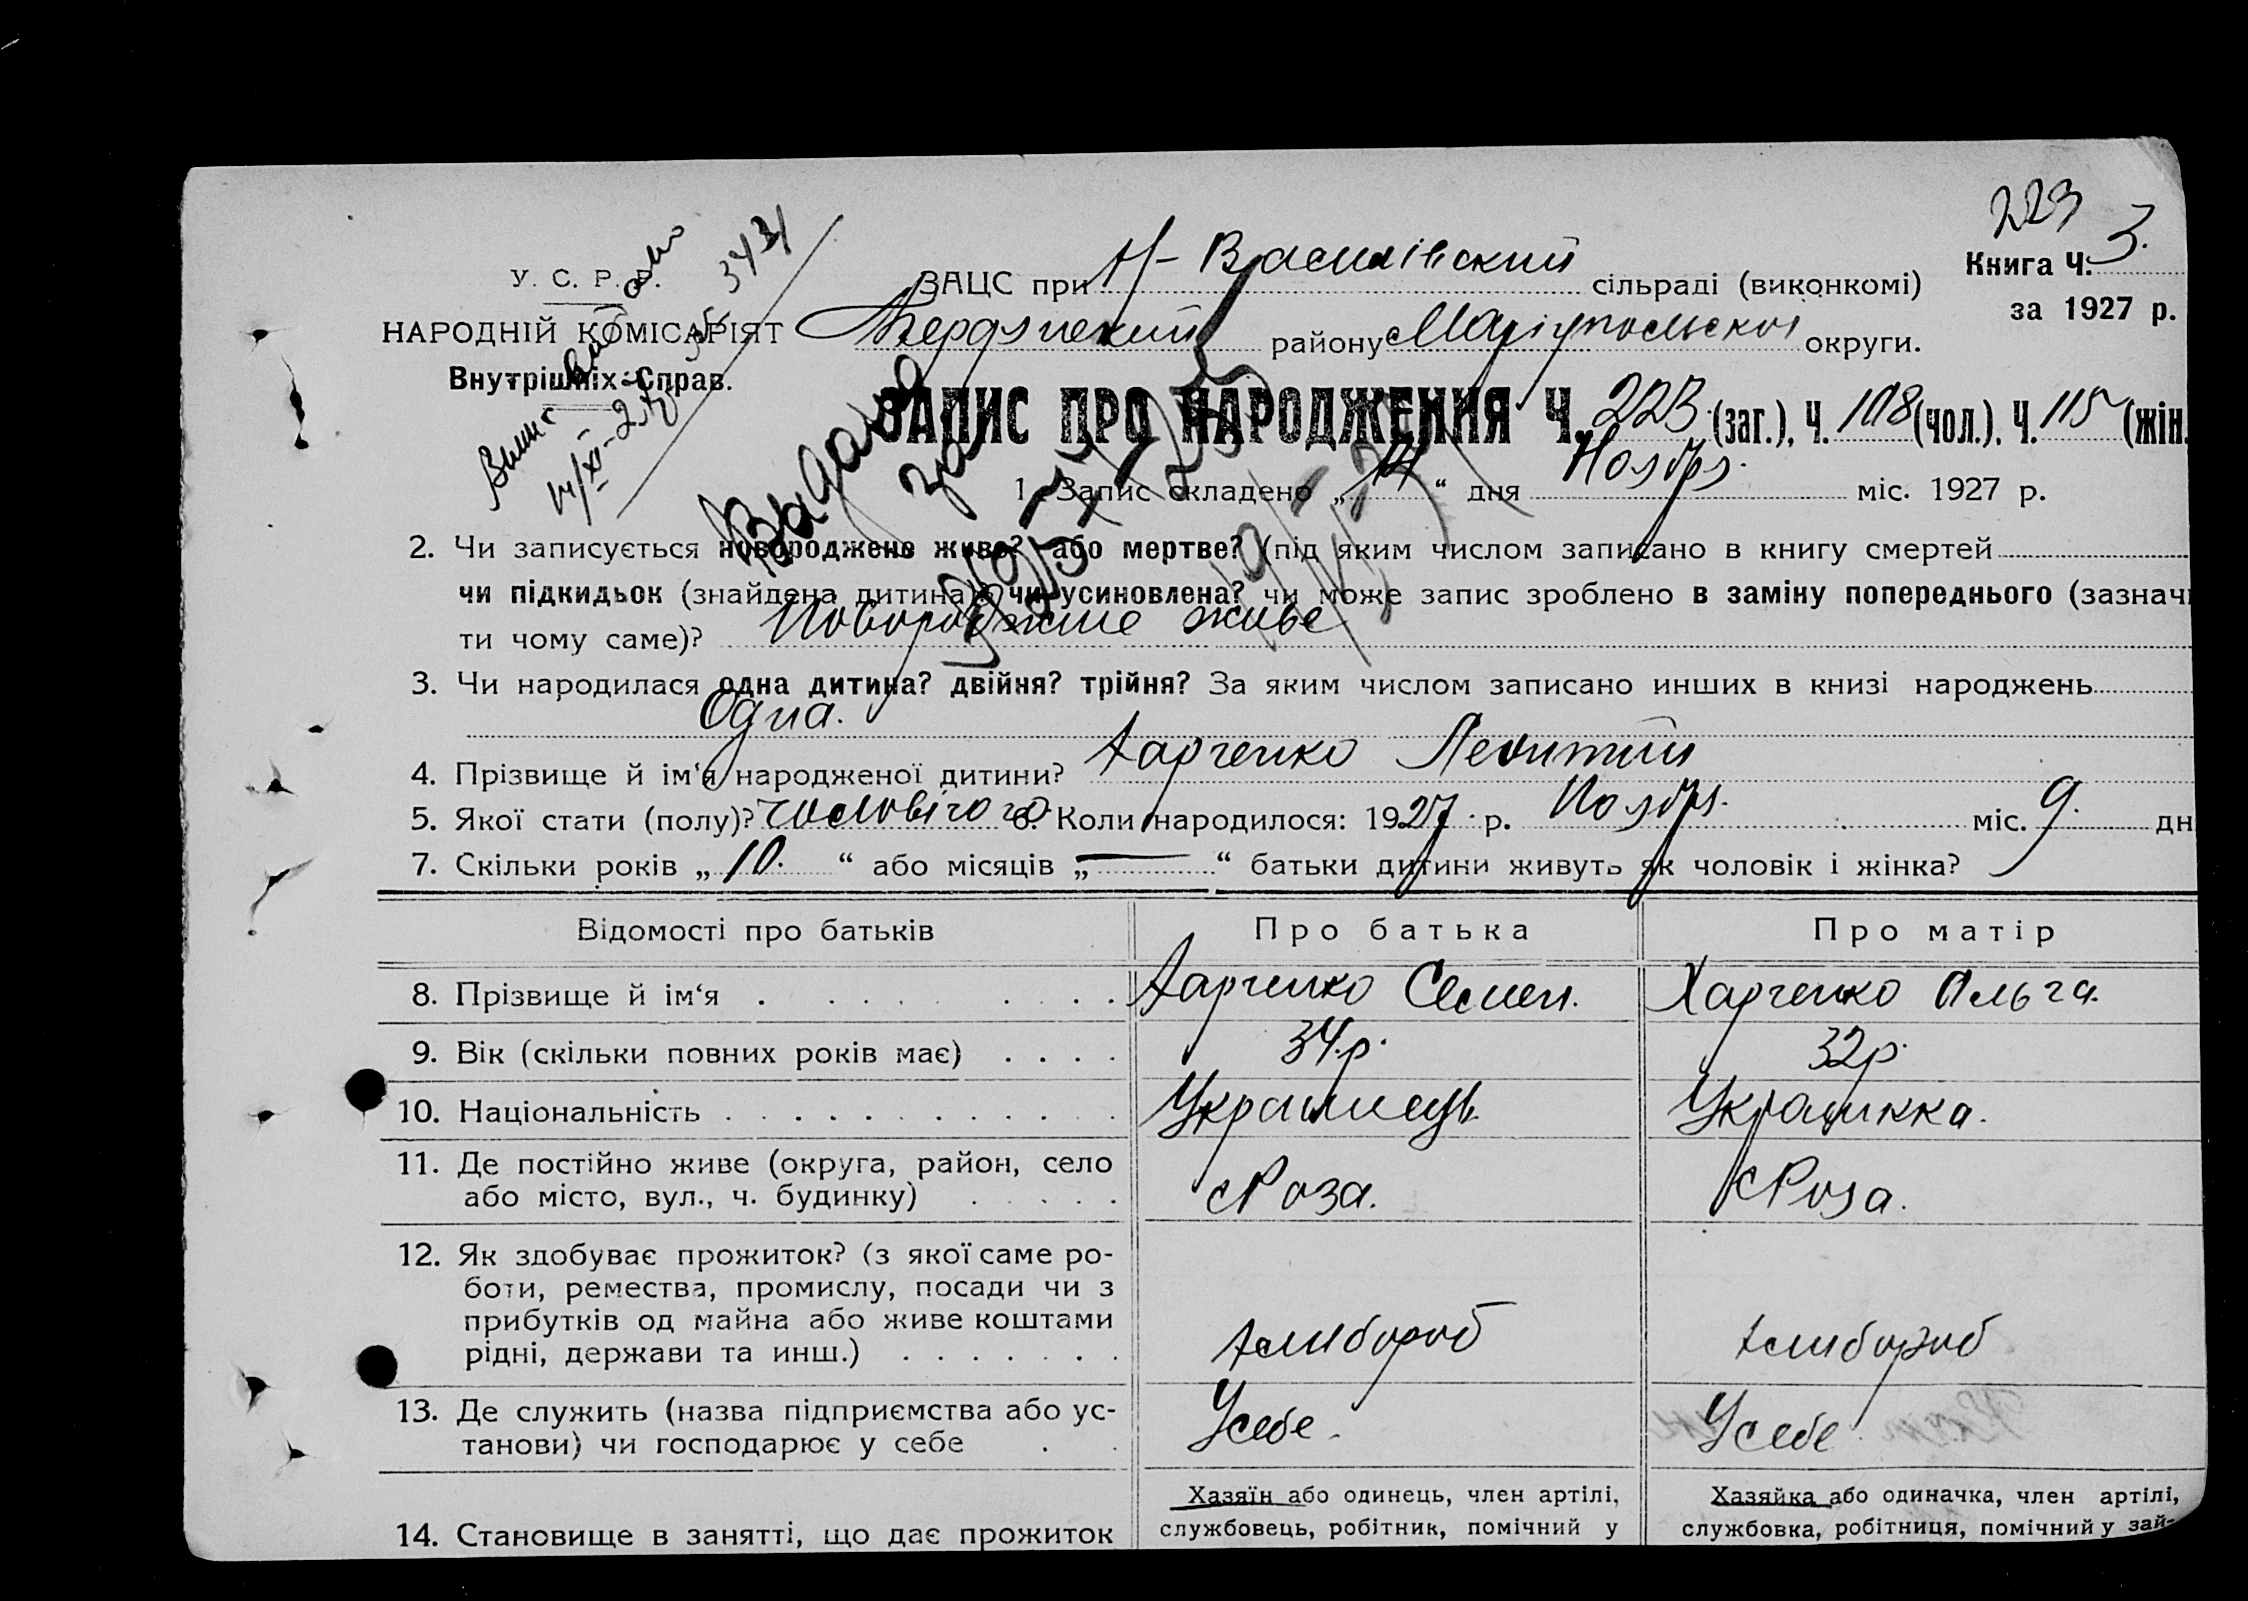 223
У. С. Р. Р.
ЗАЦС при Н-Василівский сільраді (виконкомі)
Книга Ч. 3.
НАРОДНІЙ КОМІСАРІЯТ
Бердянский району Маріупольскої округи.
за 1927 р.
Внутрішніх Справ.
ЗАПИС ПРО НАРОДЖЕННЯ Ч. 223 (заг.), Ч. 108 (чол.), Ч. 115 (жін.
Видана
1. Запис складено „ 14 “ дня Ноября міс. 1927 р.
2. Чи записується новороджене живе? або мертве? (під яким числом записано в книгу смертей
чи підкидьок (знайдена дитина)? чи усиновлена? чи може запис зроблено в заміну попереднього (зазначи
ти чому саме)? Новороджене живе
3. Чи народилася одна дитина? двійня? трійня? За яким числом записано инших в книзі народжень
Одна.
4. Прізвище й ім‘я народженої дитини? Харченко Леонтій
5. Якої стати (полу)? чоловічого 6. Коли народилося: 1927 р. Ноября міс. 9. дн
7. Скільки років „ 10. “ або місяців „ — “ батьки дитини живуть як чоловік і жінка?
Відомості про батьків Про батька Про матір
8. Прізвище й ім‘я Харченко Семен. Харченко Ольга.
9. Вік (скільки повних років має) 34.р. 32р.
10. Національність Українець Українкка.
11. Де постійно живе (округа, район, село
або місто, вул., ч. будинку) с Роза. с Роза.
12. Як здобуває прожиток? (з якої саме ро-
боти, ремества, промислу, посади чи з
прибутків од майна або живе коштами
рідні, держави та инш.) Хлибороб Хлибороб
13. Де служить (назва підприємства або ус-
танови) чи господарює у себе Усебе. Усебе
Хазяїн або одинець, член артілі, Хазяйка або одиначка, член артілі,
14. Становище в занятті, що дає прожиток службовець, робітник, помічний у службовка, робітниця, помічний у зай-